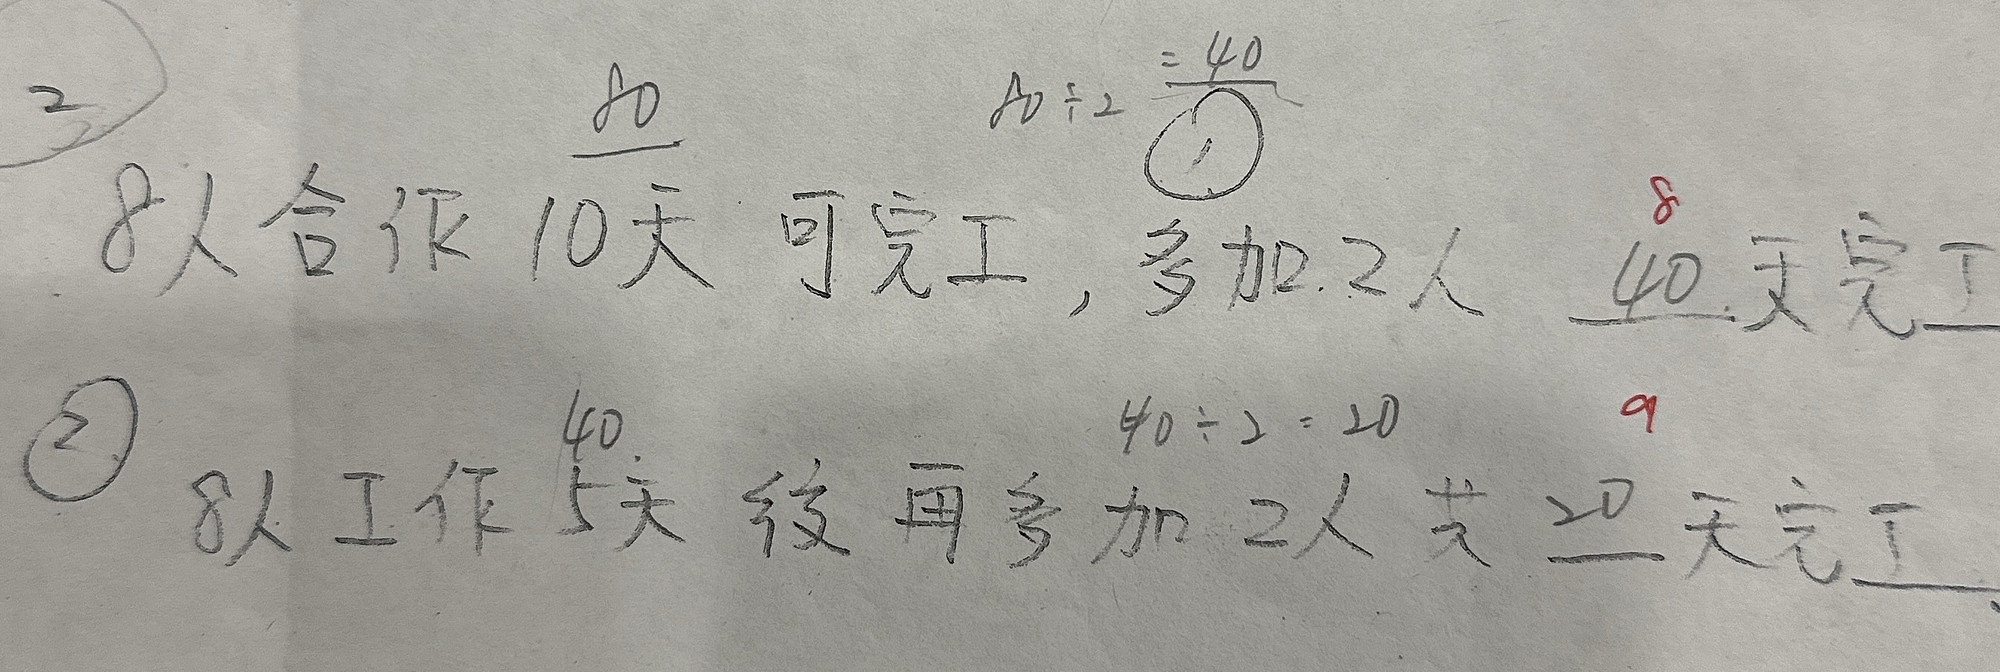 2
80
80÷2 =40
1
8人合作10天可完工，多加2人 40天完工
8
②
40
40÷2=20
9
8人工作5天 后再多加2人共20天完工